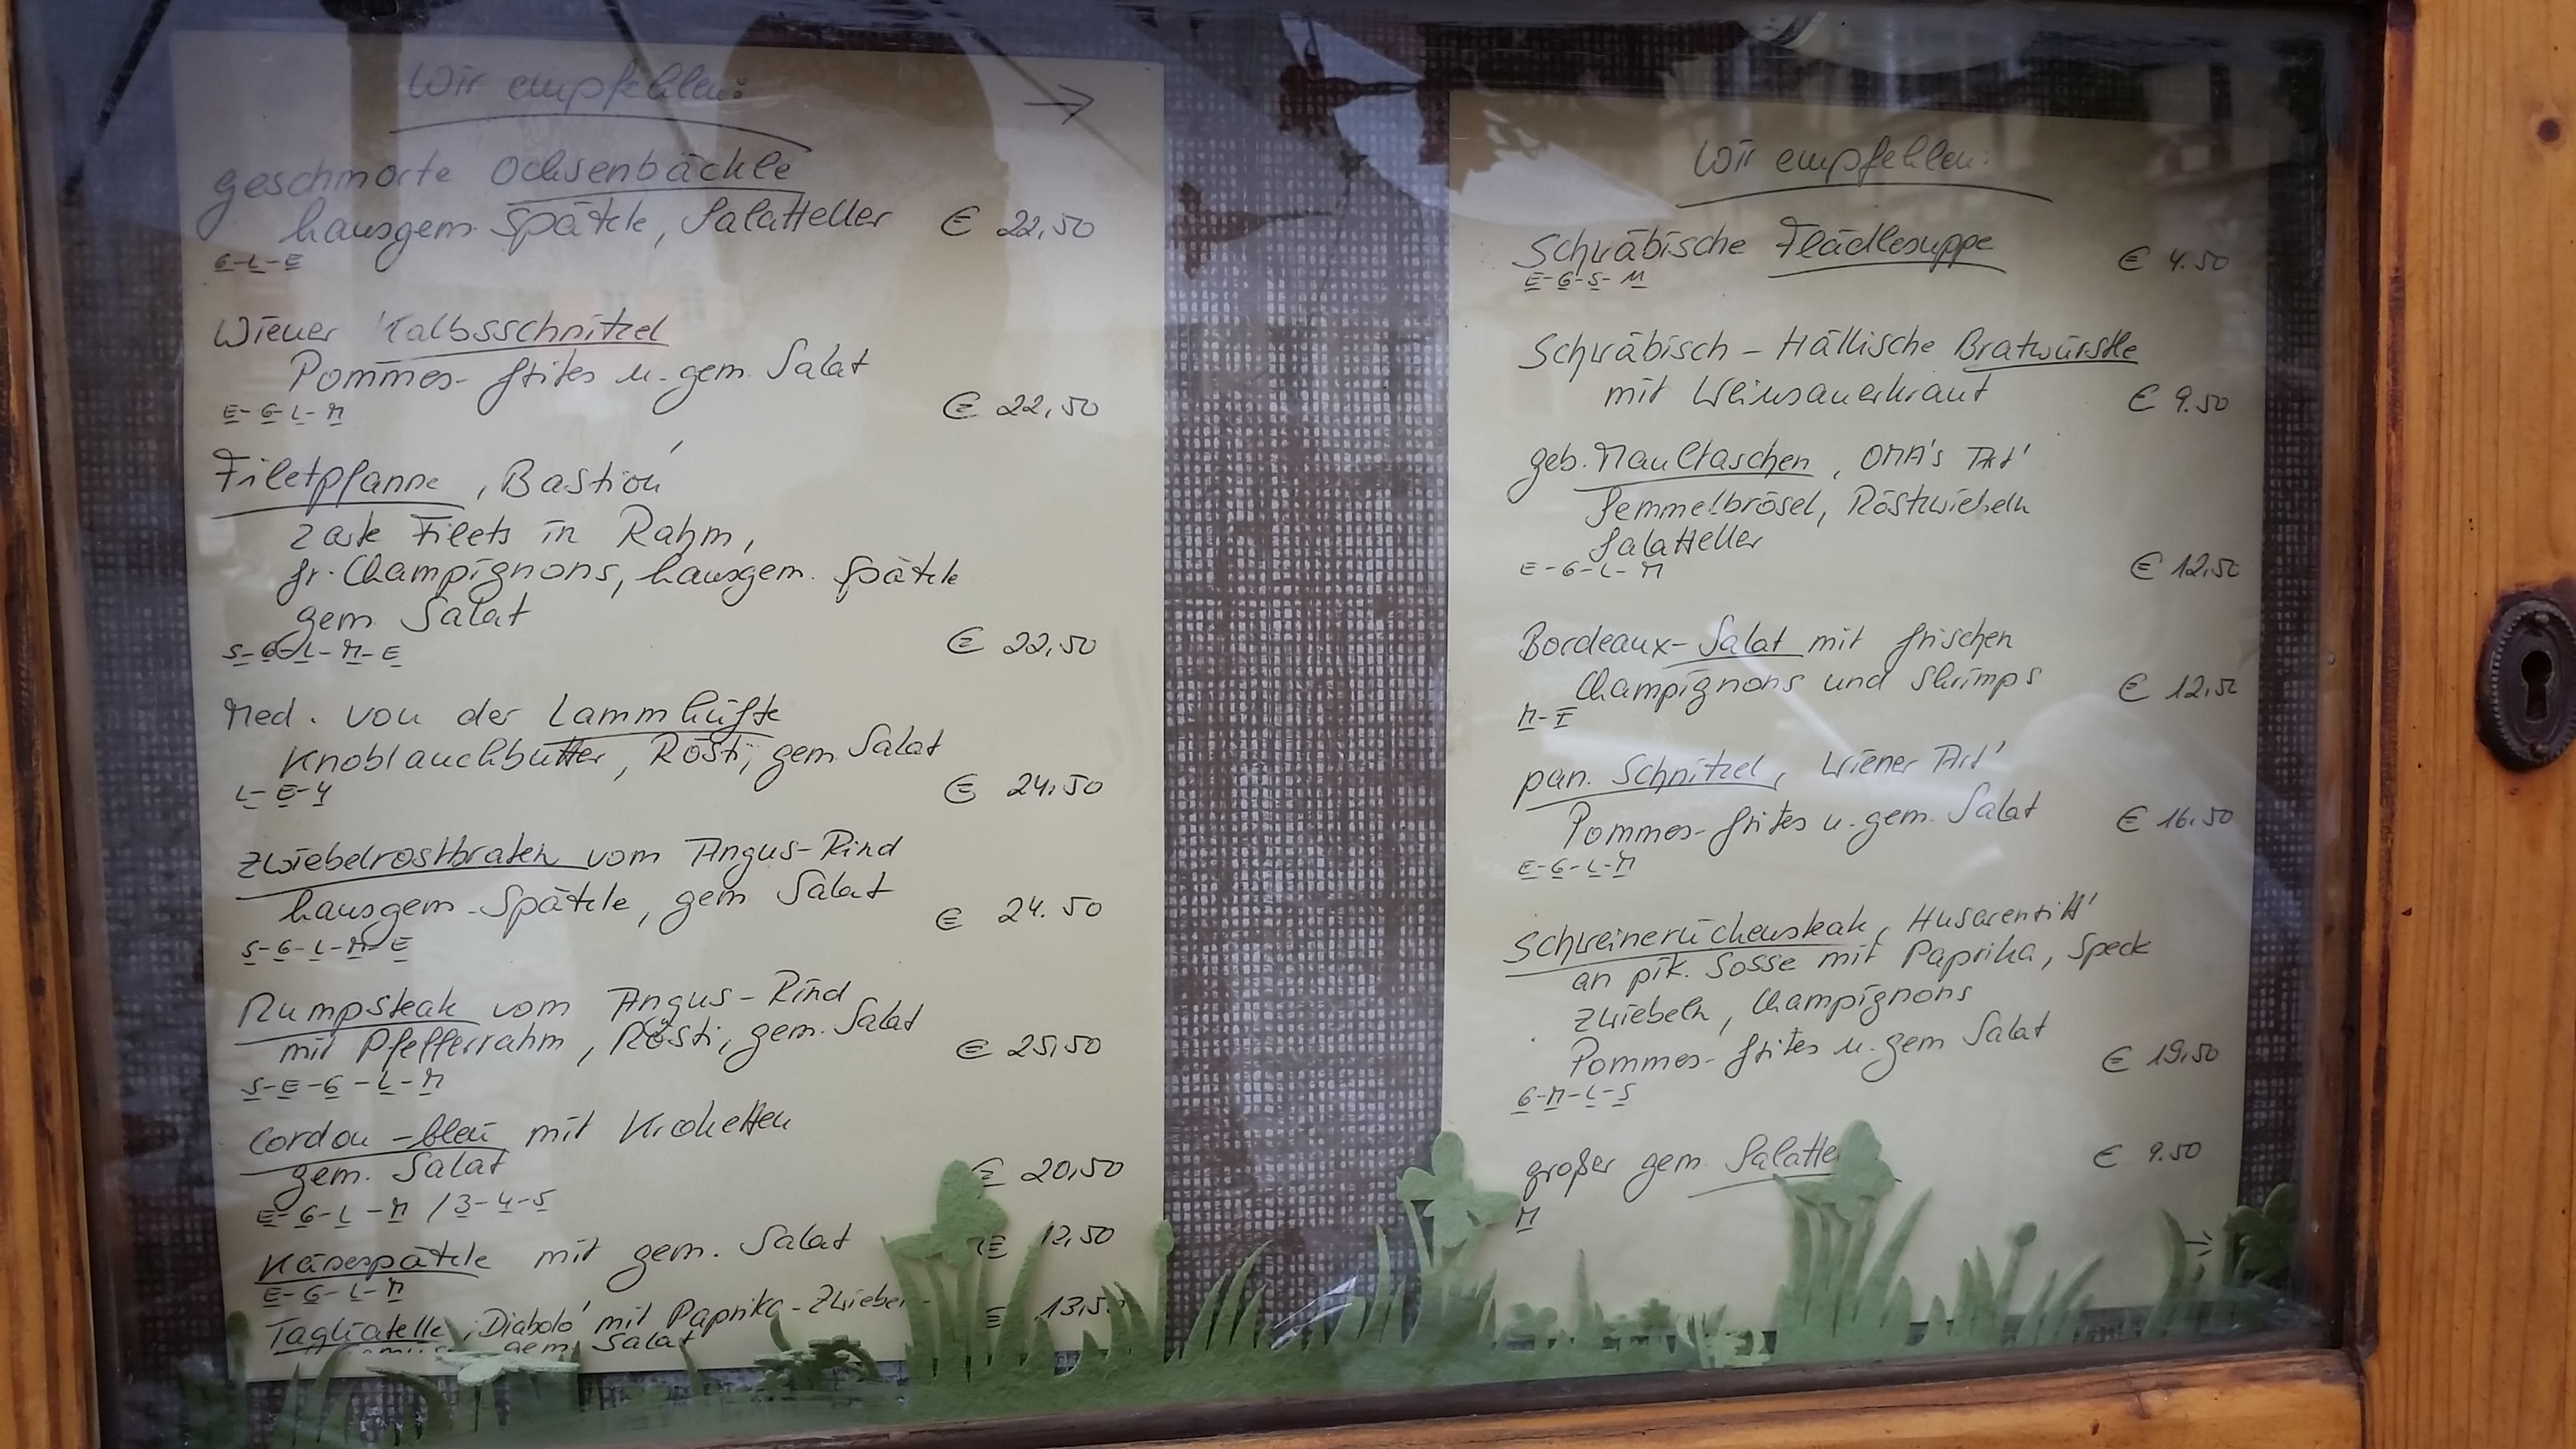 Wir empfehlen: →
geschmorte Ochsenbäckle
hausgem. Spätzle, Salatteller € 22,50
G-L-E
Wiener Kalbsschnitzel
Pommes-frites u. gem. Salat
€ 22,50
E-G-L-M
Filetpfanne 'Bastion'
zarte Filets in Rahm,
fr. Champignons, hausgem. Spätzle
gem. Salat
€ 22,50
S-G-L-M-E
Med. von der Lammhüfte
Knoblauchbutter, Rösti, gem. Salat
€ 24,50
L-E-4
Zwiebelrostbraten vom Angus-Rind
hausgem. Spätzle, gem. Salat
€ 24.50
S-G-L-M-E
Rumpsteak vom Angus-Rind
mit Pfefferrahm, Rösti, gem. Salat
€ 25,50
S-E-G-L-M
Cordon-bleu mit Kroketten
gem. Salat
€ 20,50
E-G-L-M / 3-4-5
Käsespätzle mit gem. Salat € 12,50
E-G-L-M
Tagliatelle 'Diabolo' mit Paprika-Zwiebel- € 13,50
gem. Salat
Wir empfehlen:
Schwäbische Flädlesuppe € 4.50
E-G-S-M
Schwäbisch-Hällische Bratwürstle
mit Weinsauerkraut € 9.50
geb. Maultaschen 'OMA's Art'
Semmelbrösel, Röstzwiebeln
Salatteller
€ 12,50
E-G-L-M
Bordeaux-Salat mit frischen
Champignons und Shrimps € 12,50
M-I
pan. Schnitzel 'Wiener Art'
Pommes-frites u. gem. Salat € 16.50
E-G-L-M
Schweinerückensteak 'Husarentritt'
an pik. Sosse mit Paprika, Speck
Zwiebeln, Champignons
Pommes-frites u. gem Salat € 19,50
G-M-L-S
großer gem. Salatte € 9.50
M